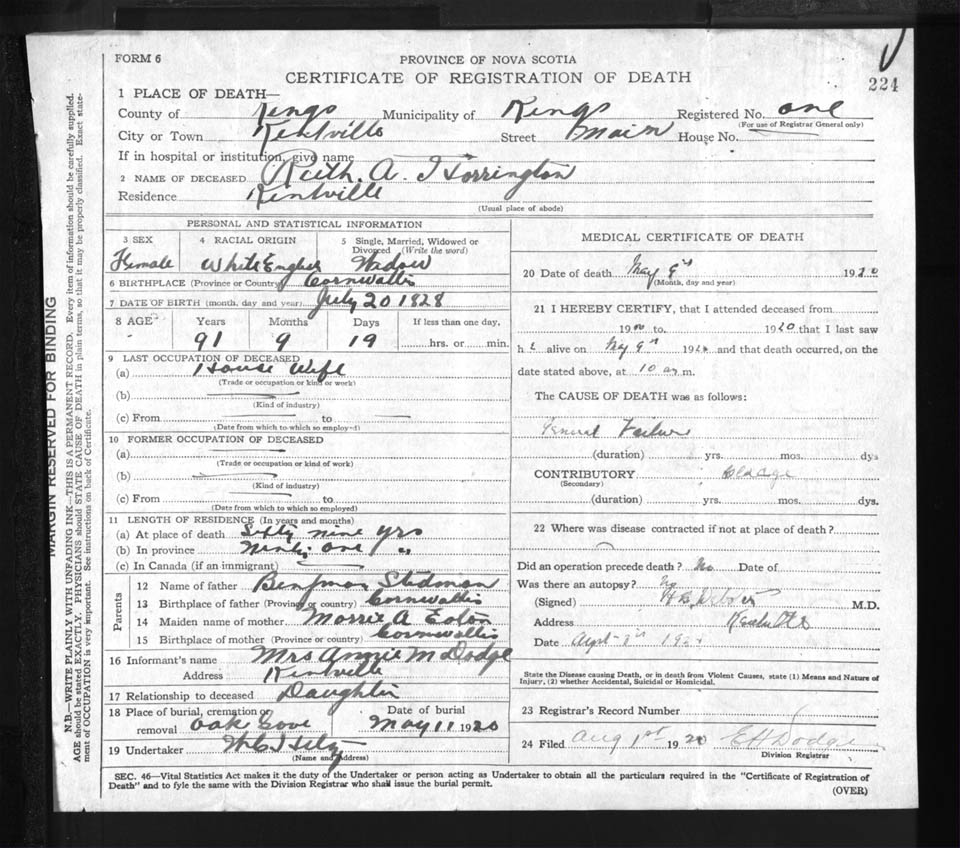 FORM 6
PROVINCE OF NOVA SCOTIA
CERTIFICATE OF REGISTRATION OF DEATH
224
1 PLACE OF DEATH—
County of Kings Municipality of Kings Registered No. one
(For use of Registrar General only)
City or Town Kentville Street Main House No.
If in hospital or institution, give name
2 NAME OF DECEASED Ruth. A. Harrington
Residence Kentville
(Usual place of abode)
PERSONAL AND STATISTICAL INFORMATION
3 SEX 4 RACIAL ORIGIN 5 Single, Married, Widowed or Divorced (Write the word)
Female White Widow
6 BIRTHPLACE (Province or Country) Cornwallis
7 DATE OF BIRTH (month, day and year) July 20 1828
8 AGE Years Months Days If less than one day,
91 9 19 hrs. or min.
9 LAST OCCUPATION OF DECEASED
(a) House Wife
(Trade or occupation or kind or work)
(b)
(Kind of industry)
(c) From to
(Date from which to which so employed)
10 FORMER OCCUPATION OF DECEASED
(a)
(Trade or occupation or kind of work)
(b)
(Kind of industry)
(c) From to
(Date from which to which so employed)
11 LENGTH OF RESIDENCE (In years and months)
(a) At place of death nine yrs
(b) In province Ninty one "
(c) In Canada (if an immigrant)
Parents
12 Name of father Stedman
13 Birthplace of father (Province or country) Cornwallis
14 Maiden name of mother A Eaton
15 Birthplace of mother (Province or country) Cornwallis
16 Informant's name Mrs Annie M Dodge
Address Kentville
17 Relationship to deceased Daughter
18 Place of burial, cremation or removal Oak Gove Date of burial May 11 1920
19 Undertaker
(Name and Address)
MEDICAL CERTIFICATE OF DEATH
20 Date of death May 9th 1920
(Month, day and year)
21 I HEREBY CERTIFY, that I attended deceased from
19 to 1920 that I last saw
h alive on May 9th 192 and that death occurred, on the
date stated above, at 10 a.m.
The CAUSE OF DEATH was as follows:
General Failure
(duration) yrs. mos. dys
CONTRIBUTORY old age
(Secondary)
(duration) yrs. mos. dys.
22 Where was disease contracted if not at place of death?
Did an operation precede death? No Date of
Was there an autopsy? No
(Signed) Webster M.D.
Address Kentville
Date 192
State the Disease causing Death, or in death from Violent Causes, state (1) Means and Nature of
Injury, (2) whether Accidental, Suicidal or Homicidal.
23 Registrar's Record Number
24 Filed Aug 1st 1920 E H Dodge
Division Registrar
SEC. 46—Vital Statistics Act makes it the duty of the Undertaker or person acting as Undertaker to obtain all the particulars required in the "Certificate of Registration of
Death" and to fyle the same with the Division Registrar who shall issue the burial permit.
(OVER)
MARGIN RESERVED FOR BINDING
N.B.—WRITE PLAINLY WITH UNFADING INK—THIS IS A PERMANENT RECORD. Every item of information should be carefully supplied.
AGE should be stated EXACTLY. PHYSICIANS should STATE CAUSE OF DEATH in plain terms, so that it may be properly classified. Exact state-
ment of OCCUPATION is very important. See instructions on back of Certificate.